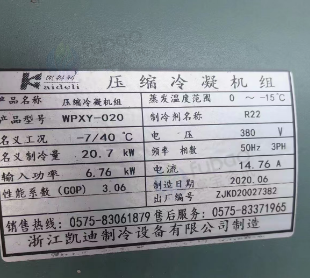 凯迪利 压缩冷凝机组
Kaideli
产品名称 压缩冷凝机组 蒸发温度范围 0 ~ -15℃
产品型号 WPXY-020 制冷剂名称 R22
名义工况 -7/40℃ 电压 380 V
名义制冷量 20.7 kW 频率 相数 50Hz 3PH
输入功率 6.76 kW 电流 14.76 A
性能系数(COP) 3.06 制造日期 2020.06
出厂编号 ZJKD20027382
销售热线:0575-83061879 售后服务:0575-83371965
浙江凯迪制冷设备有限公司制造